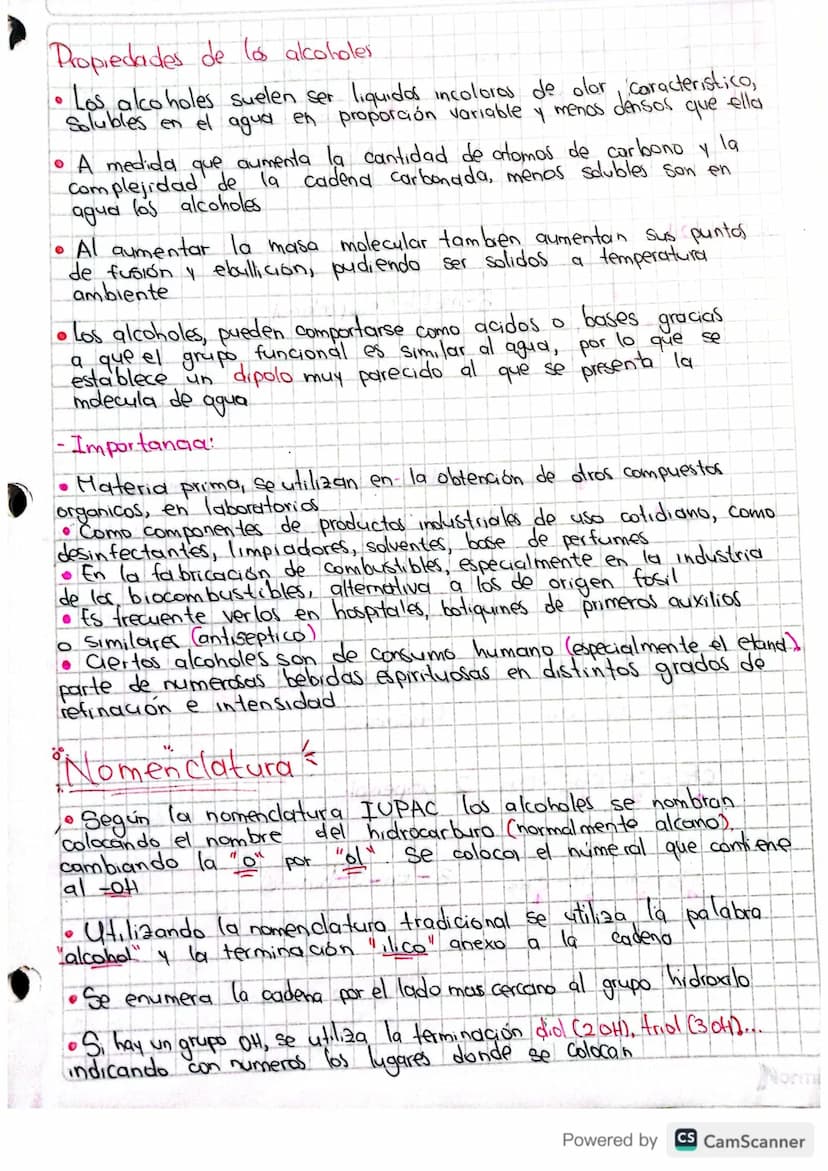 Propiedades de los alcoholes
• Los alcoholes suelen ser liquidos incoloros de olor caracteristico,
solubles en el agua en proporción variable y menos densos que ella
• A medida que aumenta la cantidad de atomos de carbono y la
complejidad de la cadena carbonada, menos solubles son en
agua los alcoholes
• Al aumentar la masa molecular tambien aumentan sus puntos
de fusión y ebullición, pudiendo ser solidos a temperatura
ambiente
• Los alcoholes, pueden comportarse como acidos o bases gracias
a que el grupo funcional es similar al agua, por lo que se
establece un dipolo muy parecido al que se presenta la
molecula de agua
- Importancia:
• Materia prima, se utilizan en la obtención de otros compuestos
organicos, en laboratorios
• Como componentes de productos industriales de uso cotidiano, como
desinfectantes, limpiadores, solventes, base de perfumes
• En la fabricación de combustibles, especialmente en la industria
de los biocombustibles, alternativa a los de origen fosil
• Es frecuente verlos en hospitales, botiquines de primeros auxilios
o similares (antiseptico)
• Ciertos alcoholes son de consumo humano (especialmente el etanol)
parte de numerosas bebidas espirituosas en distintos grados de
refinación e intensidad
Nomenclatura
• Según la nomenclatura IUPAC los alcoholes se nombran
colocando el nombre del hidrocarburo (normalmente alcano),
cambiando la "o" por "ol". Se coloca el númeral que contiene
al -OH
• Utilizando la nomenclatura tradicional se utiliza la palabra
"alcohol" y la terminación "ilico" anexo a la cadena
• Se enumera la cadena por el lado mas cercano al grupo hidroxilo
• Si hay un grupo OH, se utiliza la terminación diol (2 OH), triol (3 OH)...
indicando con numeros los lugares donde se colocan
Norma
Powered by CS CamScanner